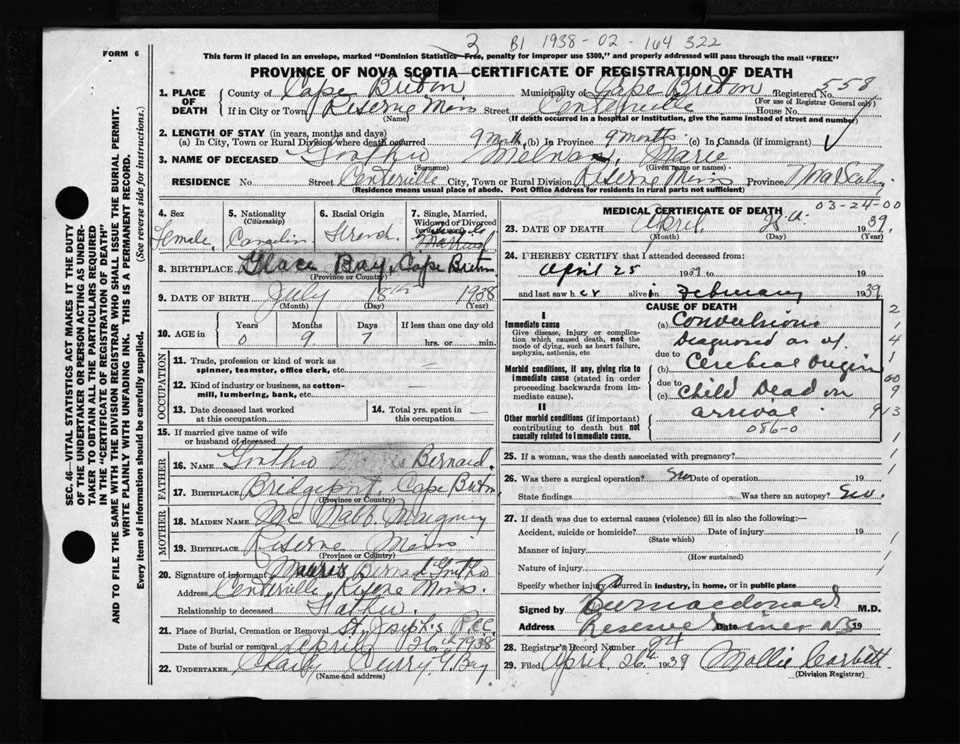 3 B1 1938-02-164 322
FORM 6
This form if placed in an envelope, marked "Dominion Statistics—Free, penalty for improper use $300," and properly addressed will pass through the mail "FREE"
PROVINCE OF NOVA SCOTIA—CERTIFICATE OF REGISTRATION OF DEATH
SEC. 46—VITAL STATISTICS ACT MAKES IT THE DUTY
OF THE UNDERTAKER OR PERSON ACTING AS UNDER-
TAKER TO OBTAIN ALL THE PARTICULARS REQUIRED
IN THE "CERTIFICATE OF REGISTRATION OF DEATH"
AND TO FILE THE SAME WITH THE DIVISION REGISTRAR WHO SHALL ISSUE THE BURIAL PERMIT.
WRITE PLAINLY WITH UNFADING INK. THIS IS A PERMANENT RECORD.
Every item of information should be carefully supplied. (See reverse side for instructions.)
1. PLACE OF DEATH County of Cape Breton Municipality of Cape Breton Registered No. 558
(For use of Registrar General only)
If in City or Town Reserve Mines Street Centerville House No.
(Name) (If death occurred in a hospital or institution, give the name instead of street and number)
2. LENGTH OF STAY (in years, months and days)
(a) In City, Town or Rural Division where death occurred 9 Months (b) In Province 9 months (c) In Canada (if immigrant)
3. NAME OF DECEASED Marie
(Surname) (Given name or names)
RESIDENCE No. Street Centerville City, Town or Rural Division Reserve Mines Province Nova Scotia
(Residence means usual place of abode. Post Office Address for residents in rural parts not sufficient)
4. Sex 5. Nationality 6. Racial Origin 7. Single, Married,
(Citizenship) Widowed or Divorced
(write the word)
Female Canadian French
8. BIRTHPLACE Glace Bay, Cape Breton
(Province or Country)
9. DATE OF BIRTH July 18th 1938
(Month) (Day) (Year)
10. AGE in Years Months Days If less than one day
0 9 7 hrs. or min.
OCCUPATION
11. Trade, profession or kind of work as
spinner, teamster, office clerk, etc.
12. Kind of industry or business, as cotton-
mill, lumbering, bank, etc.
13. Date deceased last worked
at this occupation
14. Total yrs. spent in
this occupation
15. If married give name of wife
or husband of deceased
FATHER
16. NAME Bernard
17. BIRTHPLACE Bridgeport, Cape Breton
(Province or Country)
MOTHER
18. MAIDEN NAME McNabb
19. BIRTHPLACE Reserve Mines
(Province or Country)
20. Signature of informant Bernard
Address Centerville, Reserve Mines
Relationship to deceased Father
21. Place of Burial, Cremation or Removal St. Joseph's
Date of burial or removal April 26th 1938
22. UNDERTAKER Curry G. Bay
(Name and address)
MEDICAL CERTIFICATE OF DEATH 03-24-00
23. DATE OF DEATH April 25th 1939
(Month) (Day) (Year)
24. I HEREBY CERTIFY that I attended deceased from:
April 25 1939 to 19
and last saw her alive in February 1939
CAUSE OF DEATH
I
Immediate cause
Give disease, injury or complica-
tion which caused death, not the
mode of dying, such as heart failure,
asphyxia, asthenia, etc
(a) Convulsions
Diagnosed as of
due to
Morbid conditions, if any, giving rise to
immediate cause (stated in order
proceeding backwards from im-
mediate cause).
(b) Cerebral Origin
due to
(c) Child Dead on
arrival
II
Other morbid conditions (if important)
contributing to death but not
causally related to immediate cause.
086-0
25. If a woman, was the death associated with pregnancy?
26. Was there a surgical operation? Date of operation 19
State findings Was there an autopsy?
27. If death was due to external causes (violence) fill in also the following:—
Accident, suicide or homicide? Date of injury 19
(State which)
Manner of injury
(How sustained)
Nature of injury
Specify whether injury occurred in industry, in home, or in public place
Signed by Macdonald M.D.
Address Reserve Mines NS Date 19
28. Registrar's Record Number 24
29. Filed April 26th 1939 Mollie Corbett
(Division Registrar)